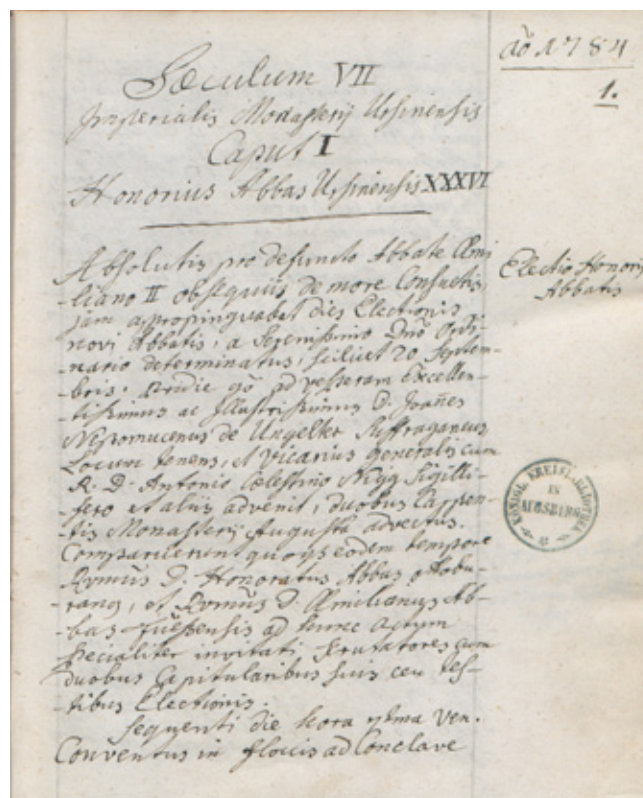 aõ 1784
1.
Sæculum VII
Imperialis Monasterij Ursinensis
Caput I
Honorius Abbas Ursinensis XXXVI
Electio Honorij
Abbatis
Absolutis pro defuncto Abbate Æmi
-liano II obsequiis de more Consuetis,
jam appropinquabat dies Electionis
novi Abbatis, a Serenissimo Dnõ Ordi
-nario determinatus, scilicet 20 Septem-
-bris. Pridie gõ ad vesperam Excellen-
-tissimus ac Illustrissimus D. Joañes
Nepomucenus de Ungelter Suffraganeus
Locum tenens, et Vicarius Generalis cum
R. D. Antonio Cœlestino Nigg Sigilli-
-fero et aliis advenit, duobus Carpen-
-tis Monasterij Augusta advectus.
Comparuerunt quoque eodem tempore
Rvmus D. Honoratus Abbas Ottobu-
-ranus, et Rvmus D. Æmilianus Ab-
-bas Fuessensis ad hunc actum
specialiter invitati Scrutatores cum
duobus Capitularibus suis ceu tes-
-tibus Electionis.
Sequenti die hora Ven.
Conventus in floccis ad Conclave
KÖNIGL. KREISBIBLIOTHEK
IN
AUGSBURG